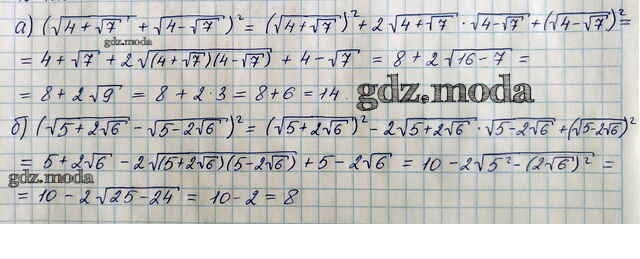 а) (√(4+√7) + √(4-√7))² = (√(4+√7))² + 2√(4+√7) · √(4-√7) + (√(4-√7))² =
gdz.moda
= 4+√7 + 2√((4+√7)(4-√7)) + 4-√7 = 8+2√(16-7) =
= 8+2√9 = 8+2·3 = 8+6 = 14.
gdz.moda
б) (√(5+2√6) - √(5-2√6))² = (√(5+2√6))² - 2√(5+2√6) · √(5-2√6) + (√(5-2√6))²
= 5+2√6 - 2√((5+2√6)(5-2√6)) + 5-2√6 = 10-2√(5²-(2√6)²) =
gdz.moda
= 10-2√(25-24) = 10-2 = 8